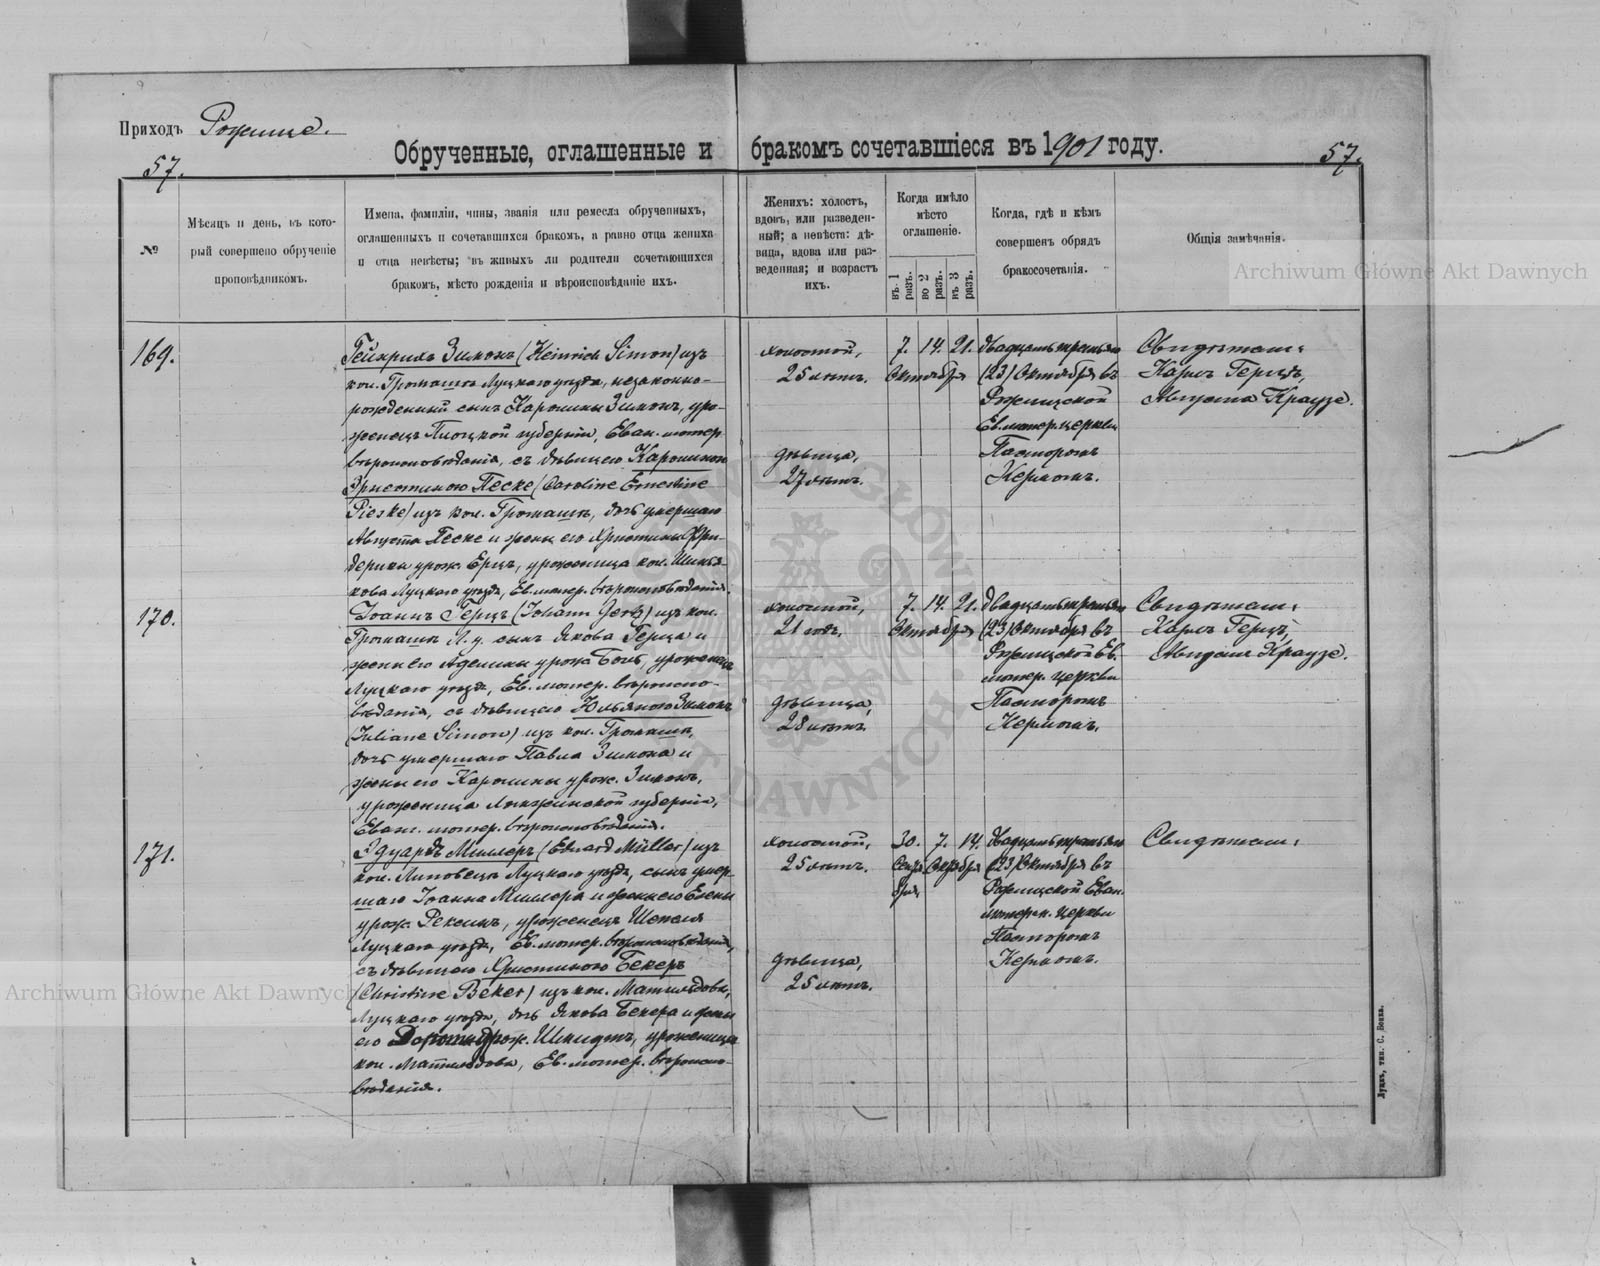 Приходъ Рожище.
57.
Обрученные, оглашенные и бракомъ сочетавшіеся въ 1901 году.
57.
№
Мѣсяцъ и день, въ кото-
рый совершено обрученіе
проповѣдникомъ.
Имена, фамиліи, чины, званія или ремесла обрученныхъ,
оглашенныхъ и сочетавшихся бракомъ, а равно отца жениха
и отца невѣсты; въ живыхъ ли родители сочетающихся
бракомъ, мѣсто рожденія и вѣроисповѣданіе ихъ.
Женихъ: холостъ,
вдовъ, или разведен-
ный; а невѣста: дѣ-
вица, вдова или раз-
веденная; и возрастъ
ихъ.
Когда имѣло
мѣсто
оглашеніе.
въ 1 разъ.
во 2 разъ.
въ 3 разъ.
Когда, гдѣ и кѣмъ
совершенъ обрядъ
бракосочетанія.
Общія замѣчанія.
169.
Гейнрихъ Зимонъ (Heinrich Simon) изъ
кол. Громашъ Луцкаго уѣзда, незаконно-
рожденный сынъ Каролины Зимонъ, уро-
женецъ Плоцкой губерніи, Еван. лютер.
вѣроисповѣданія, съ дѣвицею Каролиною
Эрнестиною Песке (Caroline Ernestine
Pieske) изъ кол. Громашъ, дочь умершаго
Августа Песке и жены его Христины Фри-
дерики урож. Ерцъ, уроженица кол.
Луцкаго уѣзда, Ев. лютер. вѣроисповѣданія.
холостой,
25 лѣтъ.
дѣвица,
27 лѣтъ.
7. 14. 21.
Октября
двадцать третьяго
(23) Октября въ
Рожищской
Ев. лютер. церкви
Пасторомъ
Керномъ.
Свидѣтели:
Карлъ Герцъ,
Августъ Краузе.
170.
Іоаннъ Герцъ (Johann Gertz) изъ кол.
Громашъ Л. у. сынъ Якова Герца и
жены его Аделины урож. уроженецъ
Луцкаго уѣзда, Ев. лютер. вѣроиспо-
вѣданія, съ дѣвицею Юльяною Зимонъ
(Juliane Simon) изъ кол. Громашъ,
дочь умершаго Павла Зимона и
жены его Каролины урож. Зимонъ,
уроженица губерніи,
Еван. лютер. вѣроисповѣданія.
холостой,
21 годъ.
дѣвица,
28 лѣтъ.
7. 14. 21.
Октября
двадцать третьяго
(23) Октября въ
Рожищской Ев.
лютер. церкви
Пасторомъ
Керномъ.
Свидѣтели:
Карлъ Герцъ,
Августъ Краузе.
171.
Эдуардъ Миллеръ (Eduard Müller) изъ
кол. Липовецъ Луцкаго уѣзда, сынъ умер-
шаго Іоанна Миллера и жены его Елены
урож. уроженецъ Шепеля
Луцкаго уѣзда, Ев. лютер. вѣроисповѣданія,
съ дѣвицею Христиною Бекеръ
(Christine Beker) изъ кол. Матильдовъ,
Луцкаго уѣзда, дочь Якова Бекера и жены
его урож. Шмидтъ, уроженица
кол. Матильдова, Ев. лютер. вѣроиспо-
вѣданія.
холостой,
25 лѣтъ.
дѣвица,
25 лѣтъ.
30. 7. 14.
Сентя- Октября
бря
двадцать третьяго
(23) Октября въ
Рожищской Еван.
лютеран. церкви
Пасторомъ
Керномъ.
Свидѣтели:
Луцкъ, тип. С. Бокха.
Archiwum Główne Akt Dawnych
Archiwum Główne Akt Dawnych